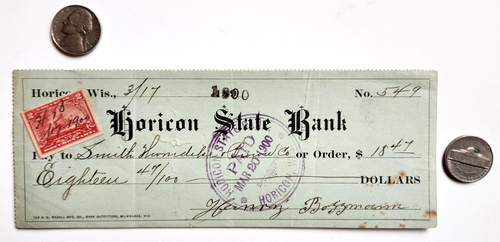 Horicon, Wis., 3/17 1900 No. 549
3/18 1900
Horicon State Bank
Pay to Smith & Co or Order, $ 18 47
Eighteen 47/100 DOLLARS
HORICON STATE
PAID
MAR 20 1900
HORICON
Henry Bozzmann